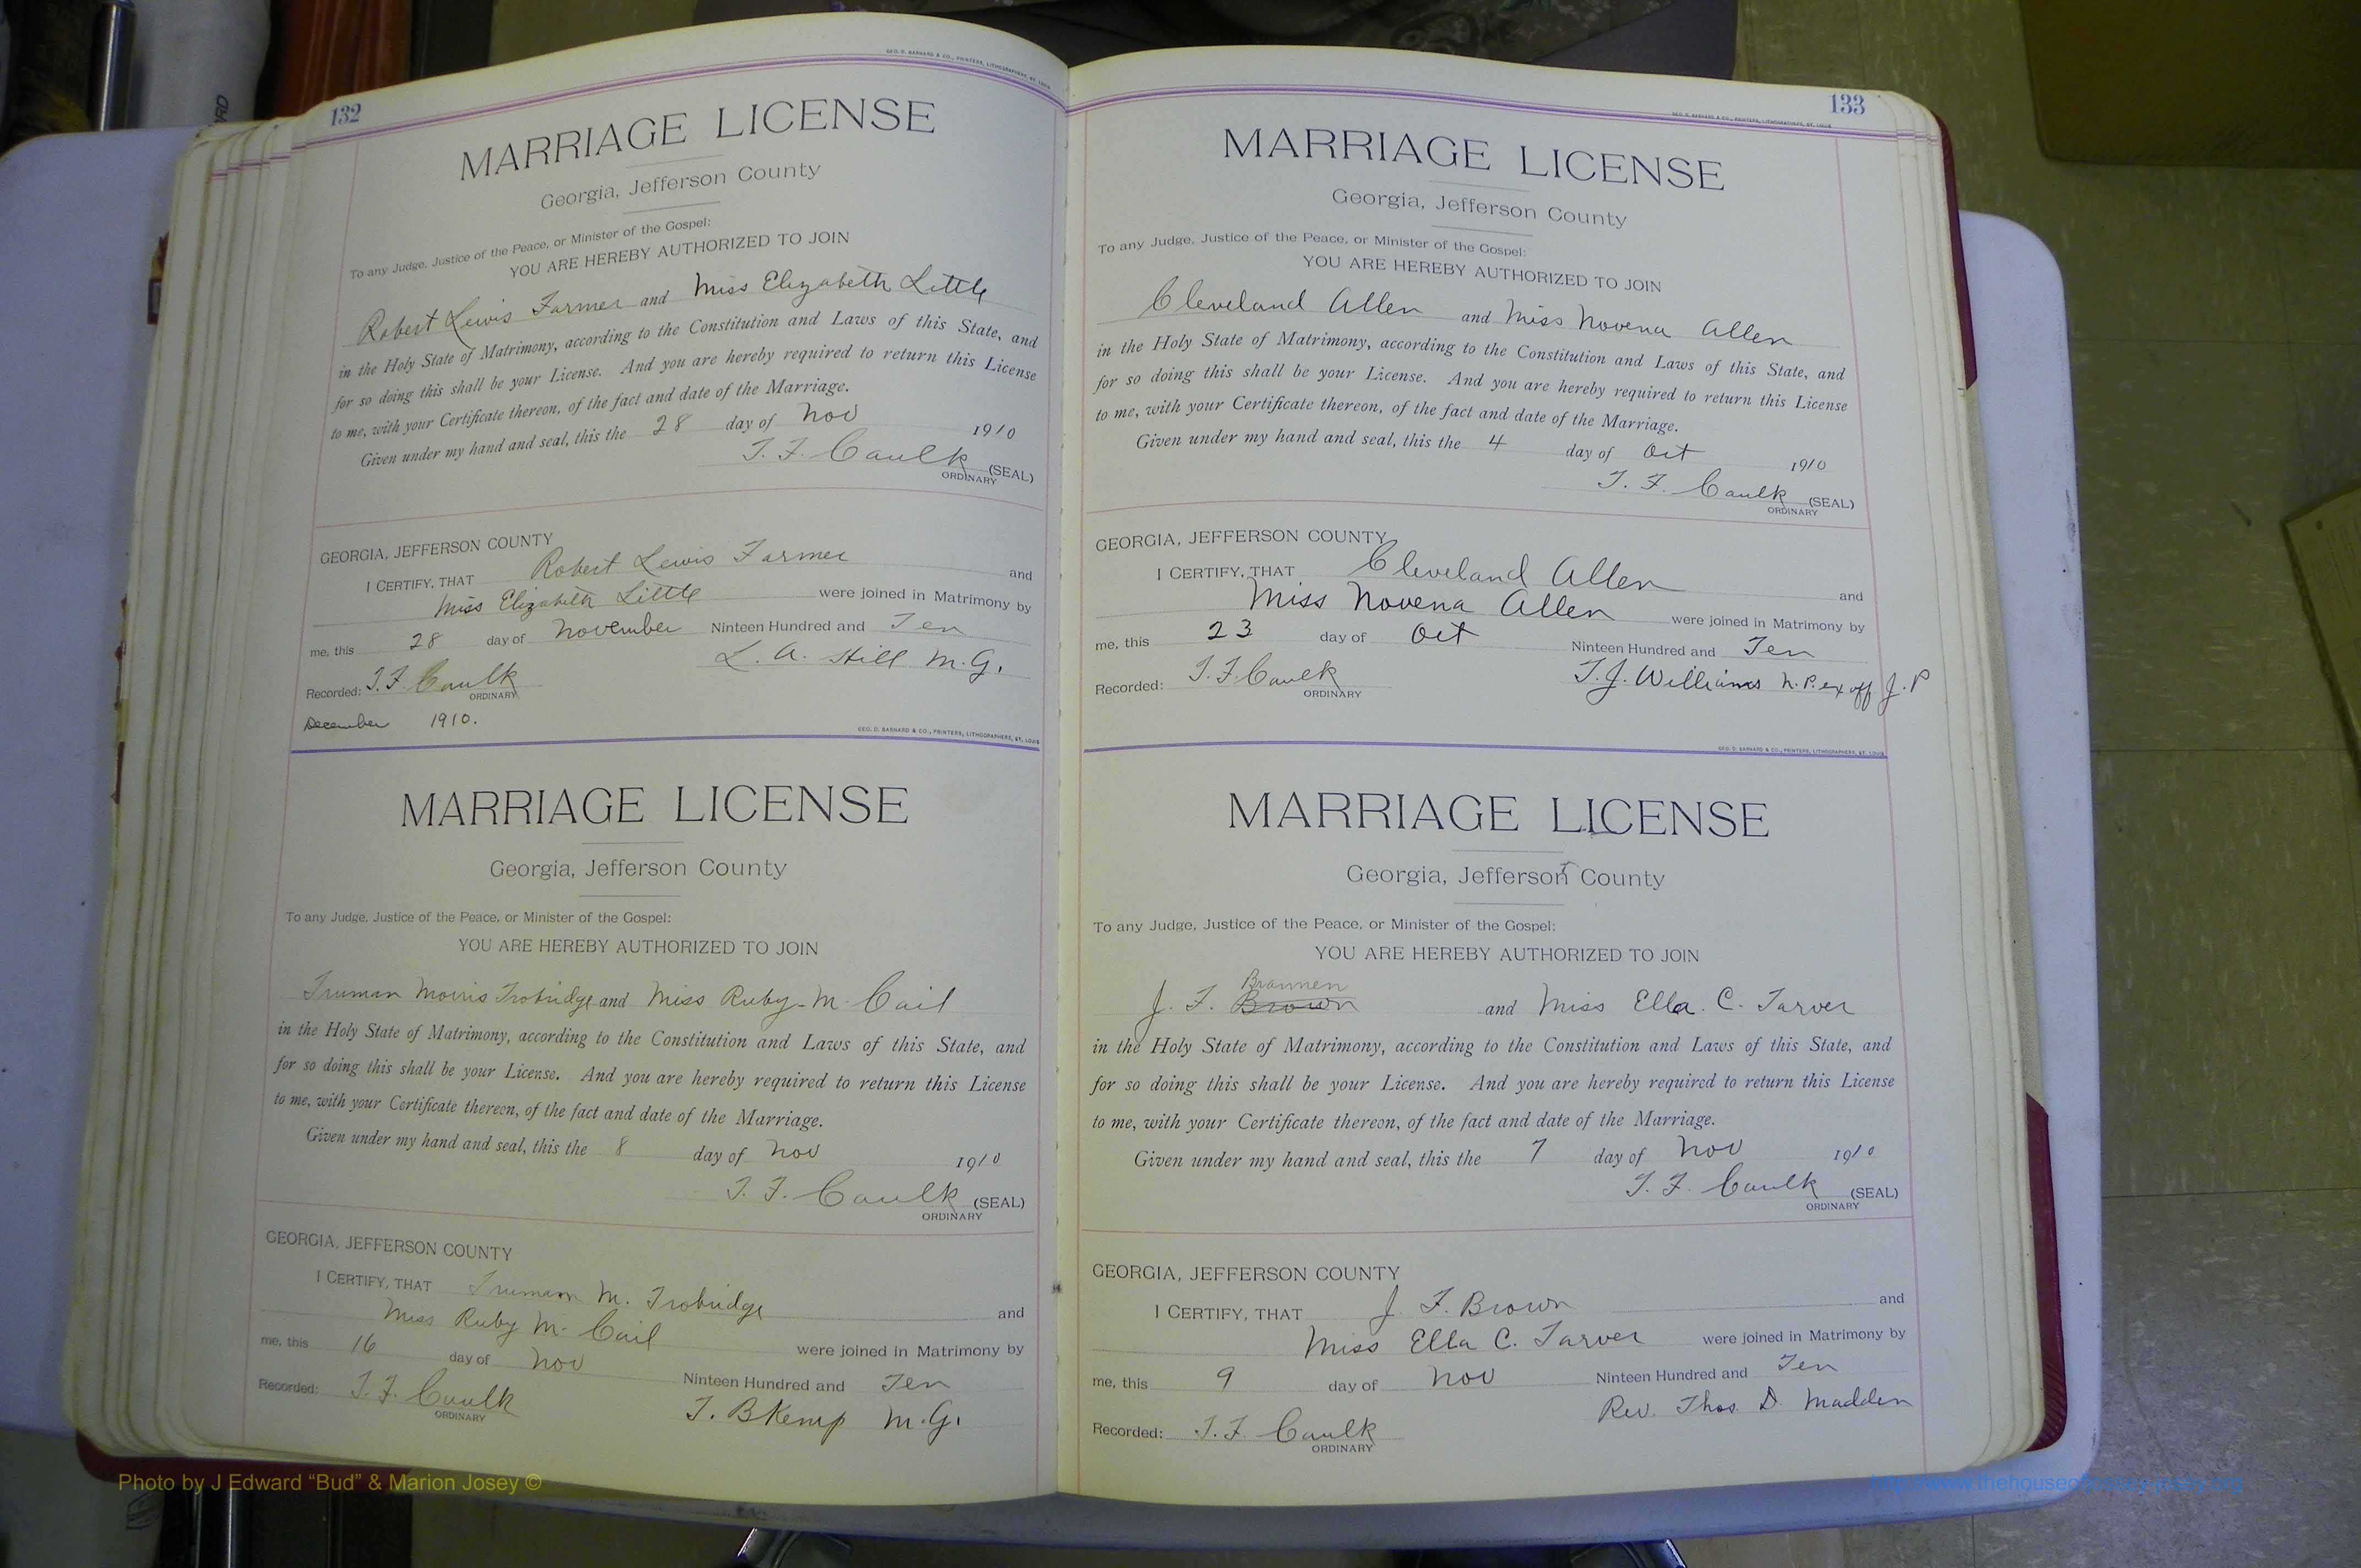 GEO. D. BARNARD & CO., PRINTERS, LITHOGRAPHERS, ST. LOUIS
132
MARRIAGE LICENSE
Georgia, Jefferson County
To any Judge, Justice of the Peace, or Minister of the Gospel:
YOU ARE HEREBY AUTHORIZED TO JOIN
Robert Lewis Farmer and Miss Elizabeth Little
in the Holy State of Matrimony, according to the Constitution and Laws of this State, and
for so doing this shall be your License. And you are hereby required to return this License
to me, with your Certificate thereon, of the fact and date of the Marriage.
Given under my hand and seal, this the 28 day of Nov 1910
T. F. Caulk (SEAL)
ORDINARY
GEORGIA, JEFFERSON COUNTY
I CERTIFY, THAT Robert Lewis Farmer and
Miss Elizabeth Little were joined in Matrimony by
me, this 28 day of November Ninteen Hundred and Ten
L. A. Hill M.G.
Recorded: T.F. Caulk
ORDINARY
December 1910.
GEO. D. BARNARD & CO., PRINTERS, LITHOGRAPHERS, ST. LOUIS
MARRIAGE LICENSE
Georgia, Jefferson County
To any Judge, Justice of the Peace, or Minister of the Gospel:
YOU ARE HEREBY AUTHORIZED TO JOIN
Truman Morris Trobridge and Miss Ruby M. Cail
in the Holy State of Matrimony, according to the Constitution and Laws of this State, and
for so doing this shall be your License. And you are hereby required to return this License
to me, with your Certificate thereon, of the fact and date of the Marriage.
Given under my hand and seal, this the 8 day of Nov 1910
T. F. Caulk (SEAL)
ORDINARY
GEORGIA, JEFFERSON COUNTY
I CERTIFY, THAT Trumann M. Trobridge and
Miss Ruby M. Cail were joined in Matrimony by
me, this 16 day of Nov Ninteen Hundred and Ten
Recorded: T. F. Caulk T. B Kemp M.G.
ORDINARY
GEO. D. BARNARD & CO., PRINTERS, LITHOGRAPHERS, ST. LOUIS
133
MARRIAGE LICENSE
Georgia, Jefferson County
To any Judge, Justice of the Peace, or Minister of the Gospel:
YOU ARE HEREBY AUTHORIZED TO JOIN
Cleveland Allen and Miss Novena Allen
in the Holy State of Matrimony, according to the Constitution and Laws of this State, and
for so doing this shall be your License. And you are hereby required to return this License
to me, with your Certificate thereon, of the fact and date of the Marriage.
Given under my hand and seal, this the 4 day of Oct 1910
T. F. Caulk (SEAL)
ORDINARY
GEORGIA, JEFFERSON COUNTY
I CERTIFY, THAT Cleveland Allen and
Miss Novena Allen were joined in Matrimony by
me, this 23 day of Oct Ninteen Hundred and Ten
Recorded: T. F. Caulk T. J. Williams N.P. ex off J.P
ORDINARY
GEO. D. BARNARD & CO., PRINTERS, LITHOGRAPHERS, ST. LOUIS
MARRIAGE LICENSE
Georgia, Jefferson County
To any Judge, Justice of the Peace, or Minister of the Gospel:
YOU ARE HEREBY AUTHORIZED TO JOIN
Brannen
J. F. Brown and Miss Ella. C. Tarver
in the Holy State of Matrimony, according to the Constitution and Laws of this State, and
for so doing this shall be your License. And you are hereby required to return this License
to me, with your Certificate thereon, of the fact and date of the Marriage.
Given under my hand and seal, this the 7 day of Nov 1910
T. F. Caulk (SEAL)
ORDINARY
GEORGIA, JEFFERSON COUNTY
I CERTIFY, THAT J. F. Brown and
Miss Ella C. Tarver were joined in Matrimony by
me, this 9 day of Nov Ninteen Hundred and Ten
Rev. Thos. D. Madden
Recorded: T. F. Caulk
ORDINARY
Photo by J Edward “Bud” & Marion Josey ©
http://www.thehouseofjossey-josey.org